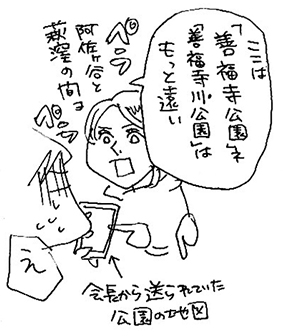 ここは
「善福寺公園」ネ
「善福寺川公園」は
もっと遠い
ペラ
阿佐ヶ谷と
荻窪の間ヨ
ペラ
え
会長から送られていた
公園の地図